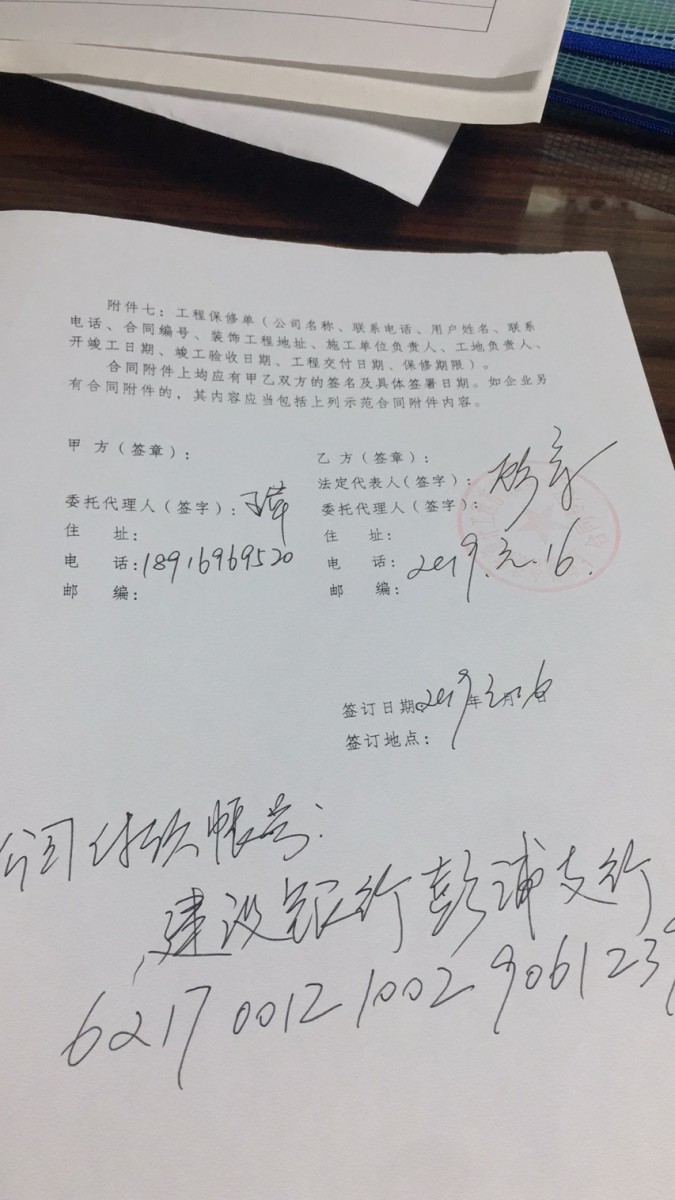 附件七：工程保修单（公司名称、联系电话、用户姓名、联系
电话、合同编号、装饰工程地址、施工单位负责人、工地负责人、
开竣工日期、竣工验收日期、工程交付日期、保修期限）。
合同附件上均应有甲乙双方的签名及具体签署日期。如企业另
有合同附件的，其内容应当包括上列示范合同附件内容。
甲 方（签章）：
委托代理人（签字）：
住 址：
电 话：18916969520
邮 编：
乙 方（签章）：
法定代表人（签字）：
委托代理人（签字）：
住 址：
电 话：2019.元.16.
邮 编：
签订日期：2019年元月16日
签订地点：
公司付款帐号：
建设银行彭浦支行
6217 0012 1002 9061239